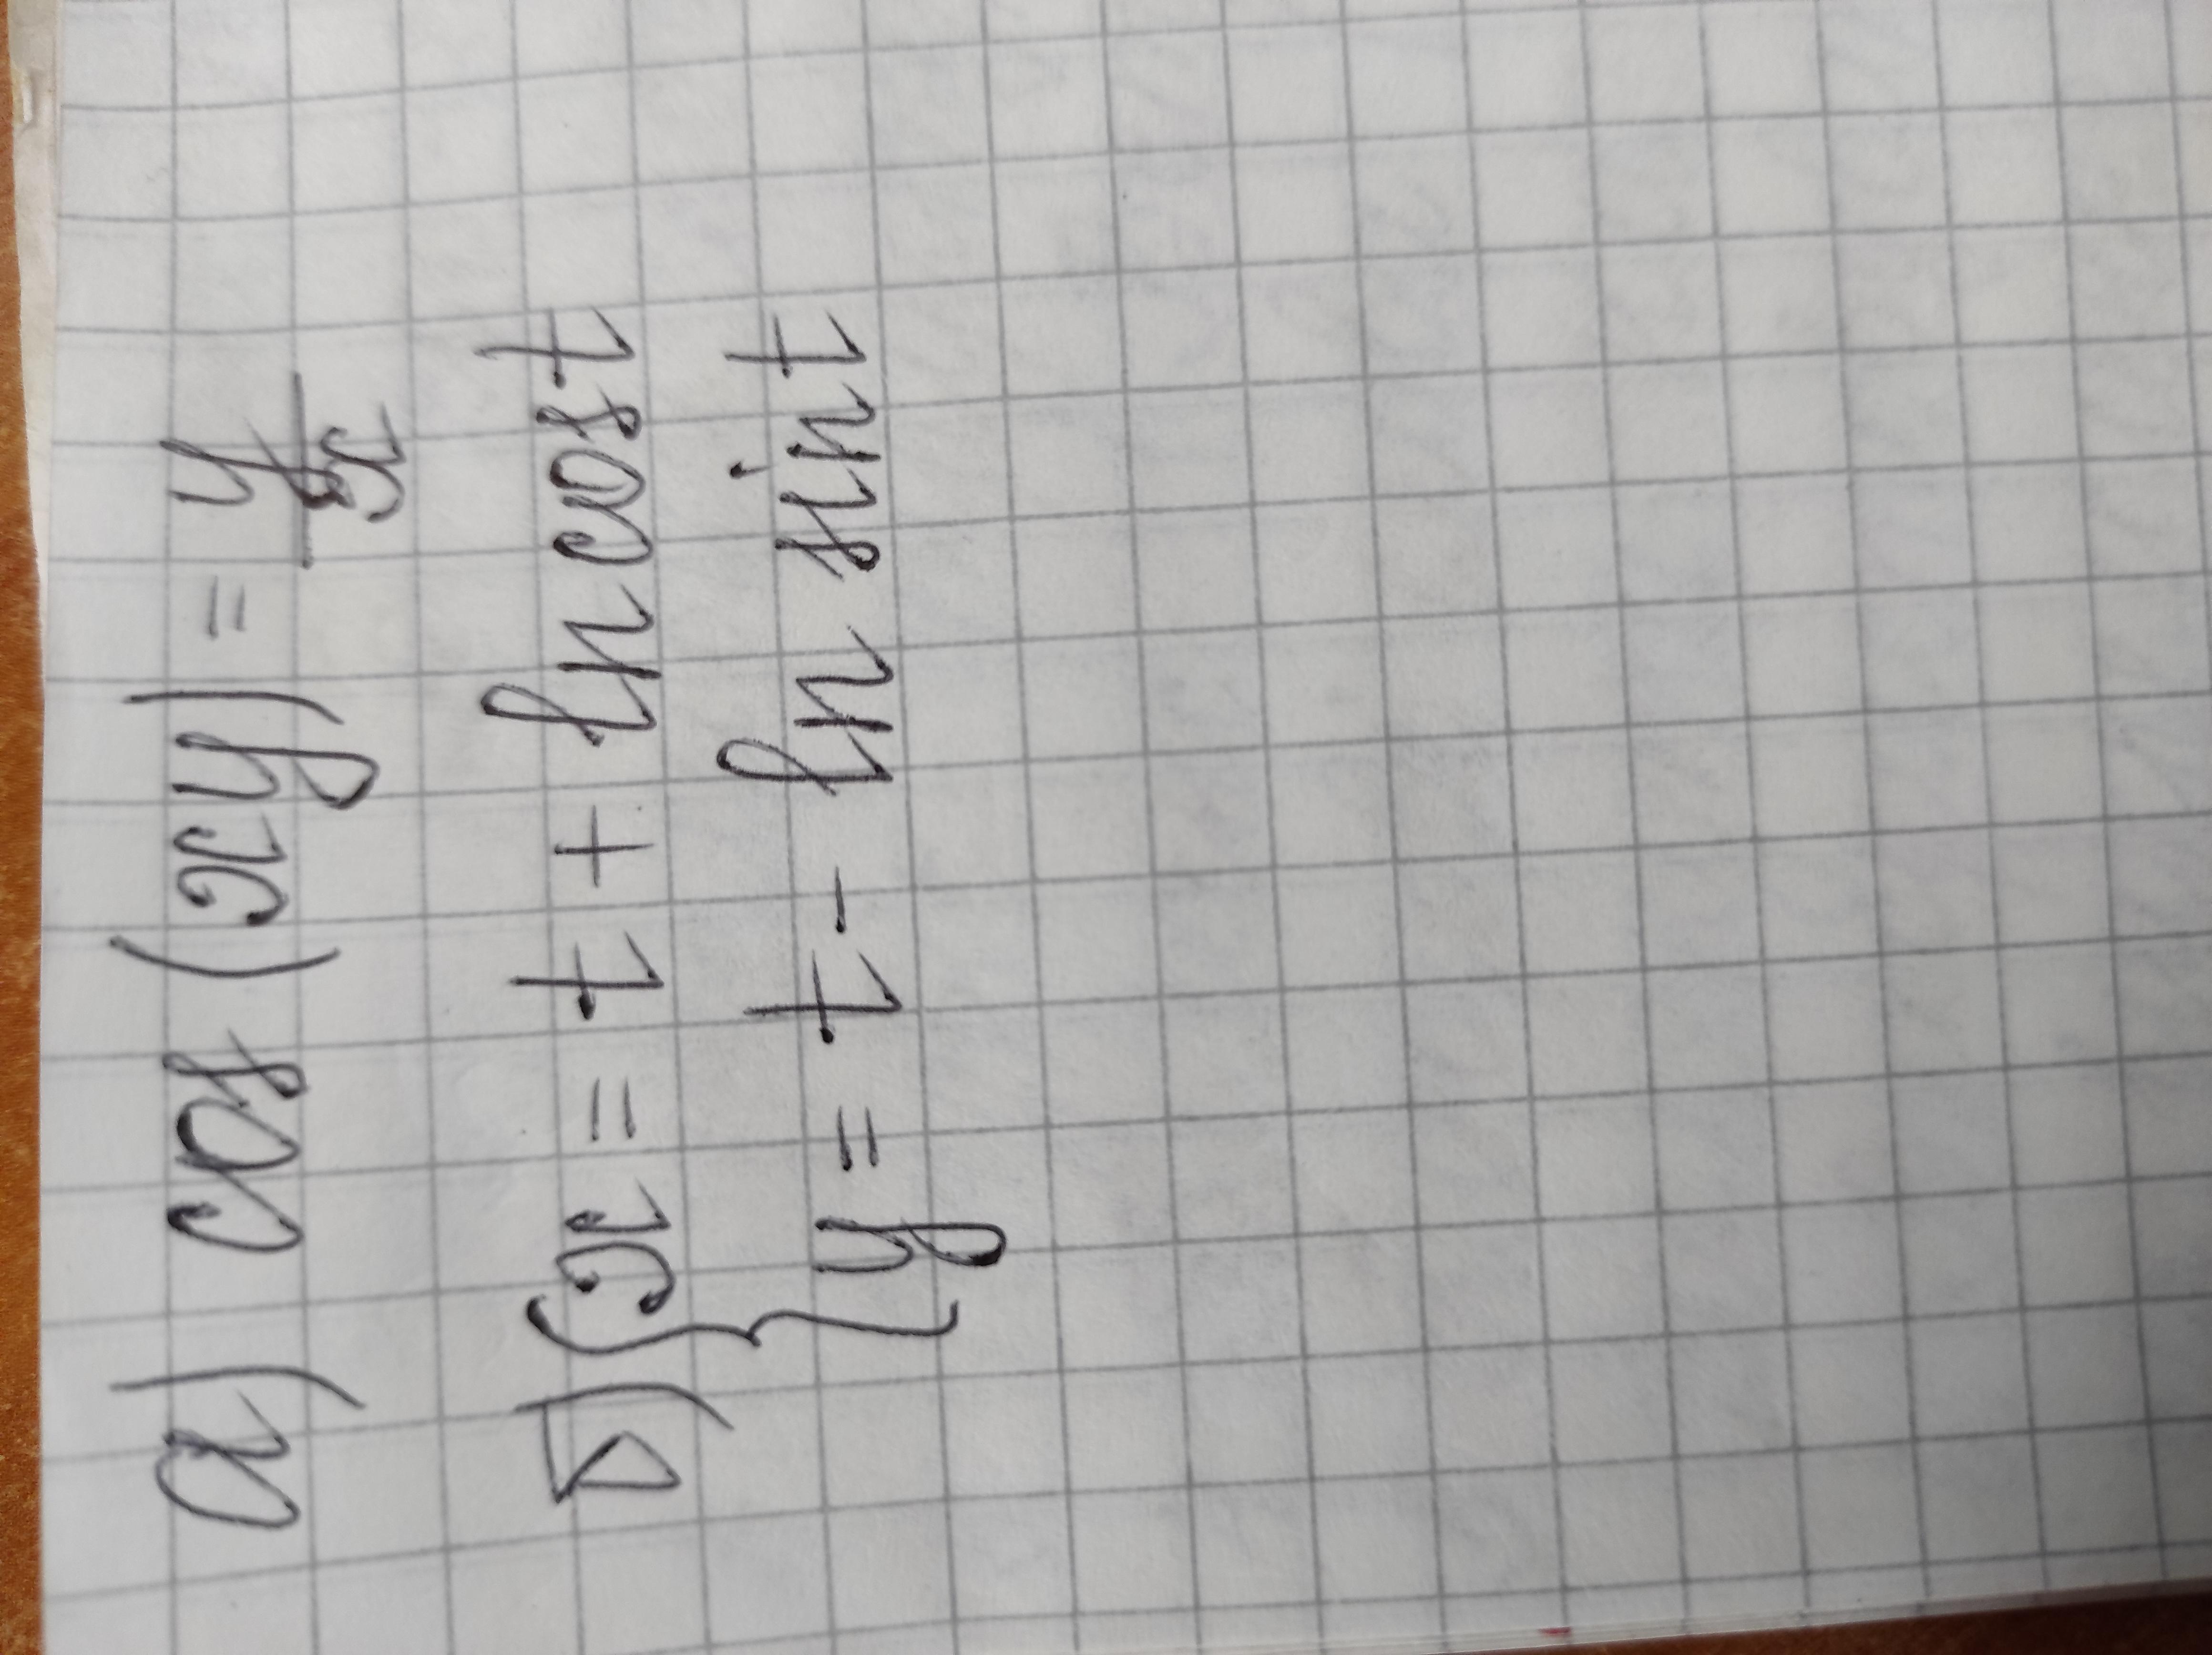 а) cos (xy) = y/x
б) { x = t + ln cos t
y = t - ln sin t